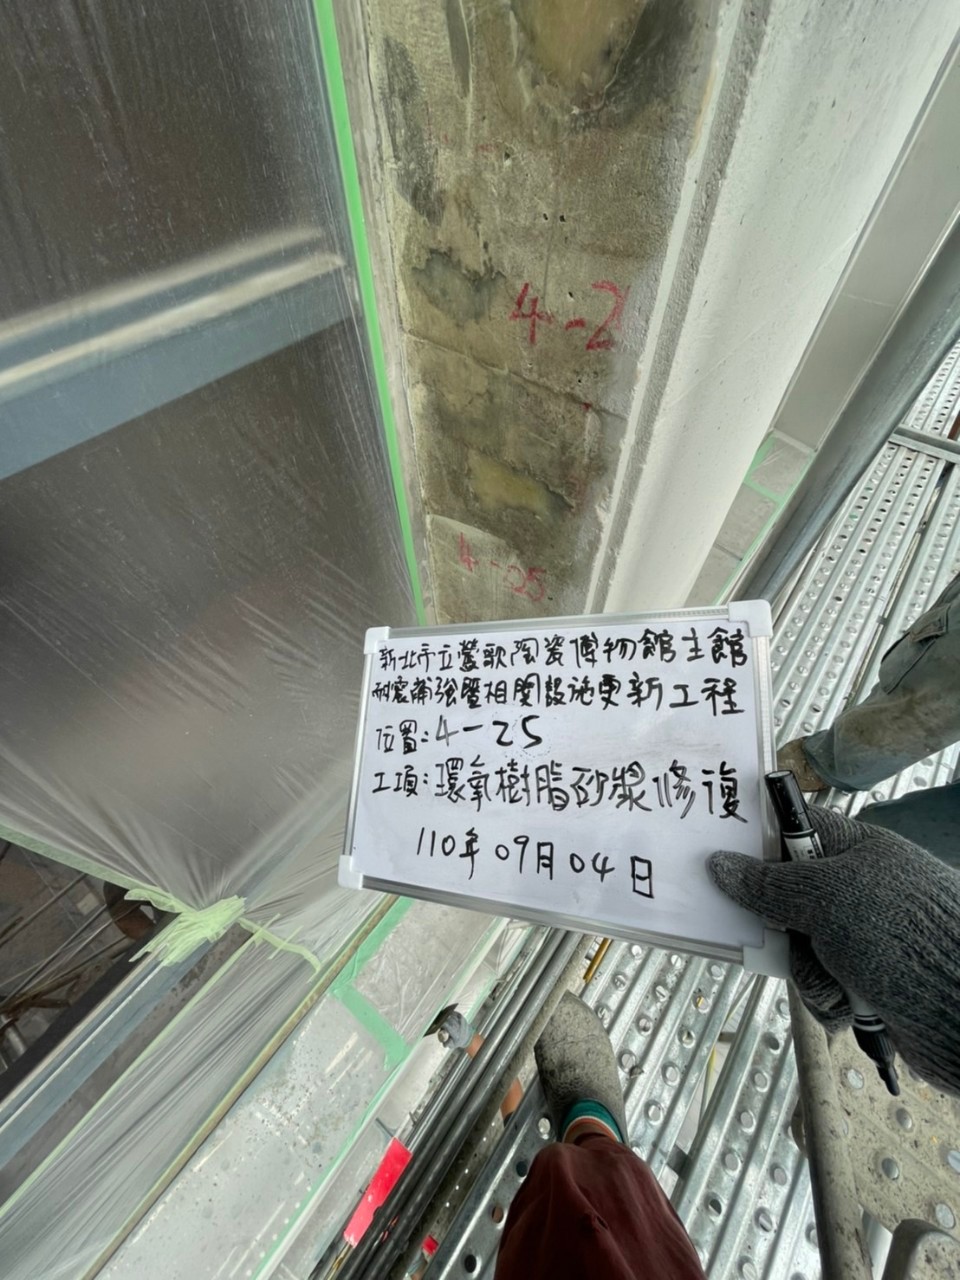 4-2
4-25
新北市立鶯歌陶瓷博物館主館
耐震補強暨相關設施更新工程
位置:4-25
工項:環氧樹脂砂漿修復
110年09月04日